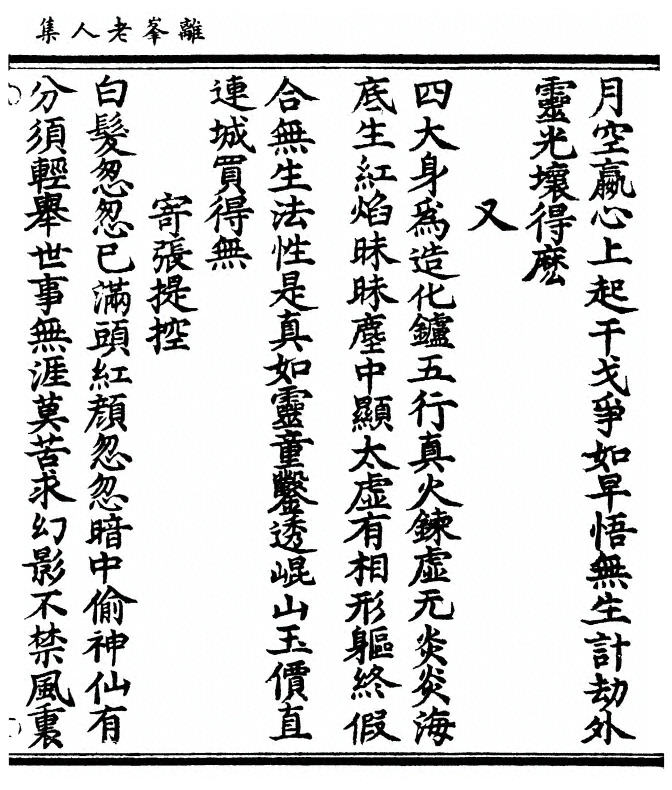 離峯老人集
月空羸心上起干戈爭如早悟無生計劫外
靈光壞得麽
又
四大身爲造化鑪五行真火鍊虛无炎炎海
底生紅焰昧昧塵中顯太虛有相形軀終假
合無生法性是真如靈童鑿透崐山玉價直
連城買得無
寄張提控
白髮忽忽已滿頭紅顔忽忽暗中偷神仙有
分須輕舉世事無涯莫苦求幻影不禁風裏